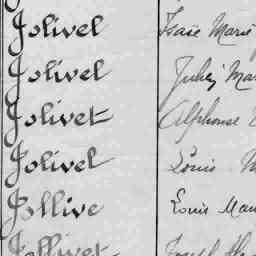 Jolivel Isaïe Marie
Jolivel Jules Ma
Jolivet Alphonse
Jolivel Louis M
Jollive Louis Mau
Jollivet Joseph